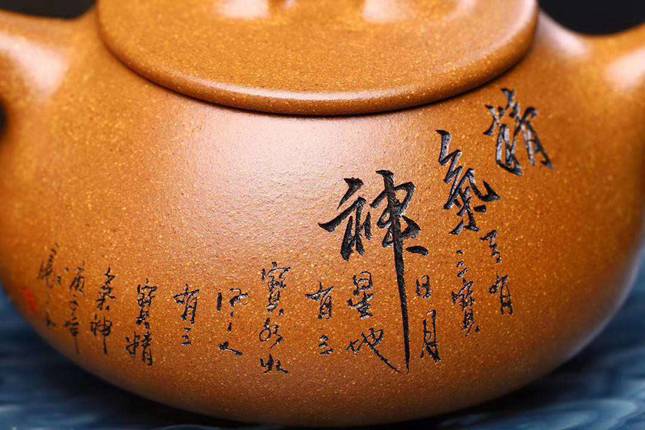 精
氣
神
天有
三寶
日月
星地
有三
寶水火
风人
有三
寶精
氣神